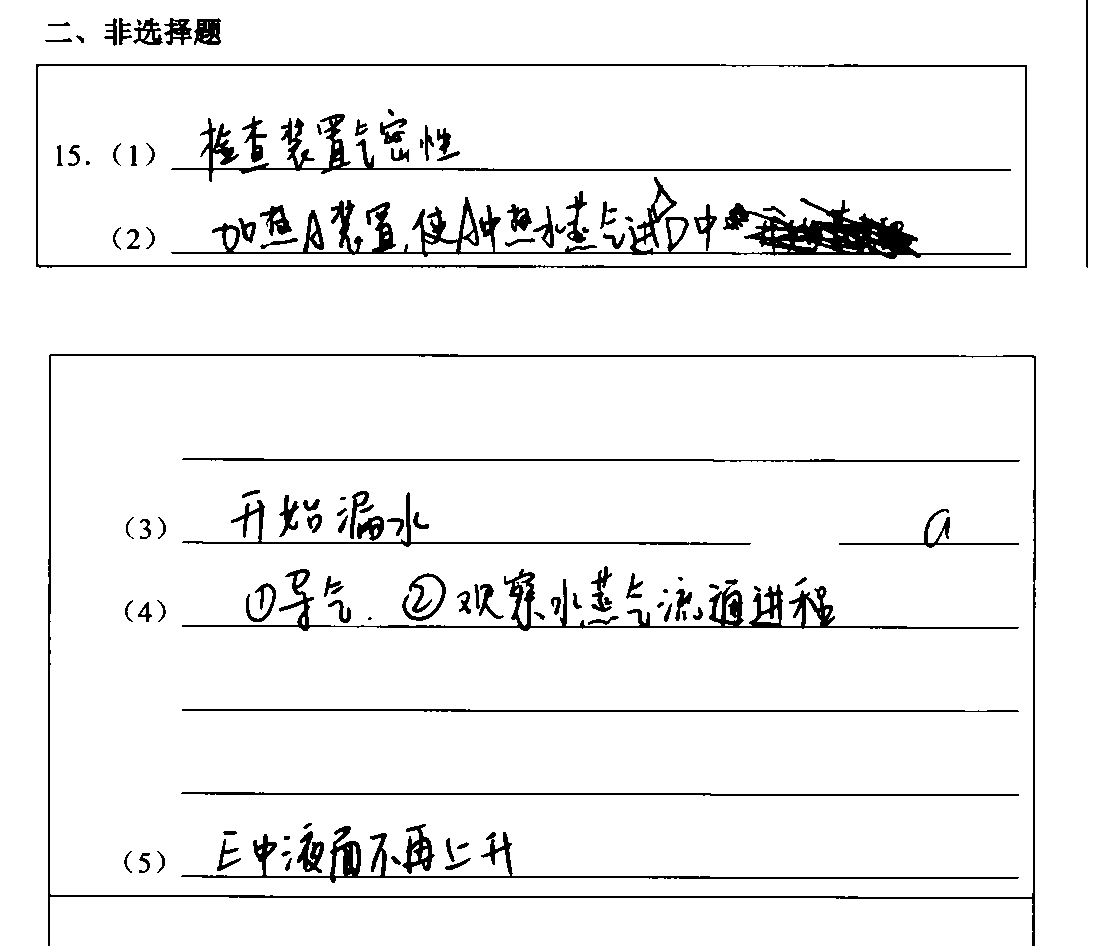 二、非选择题
15.（1）检查装置气密性
（2）加热A装置,使A中热水蒸气进入D中
（3）开始漏水 a
（4）①导气. ②观察水蒸气流通进程
（5）E中液面不再上升